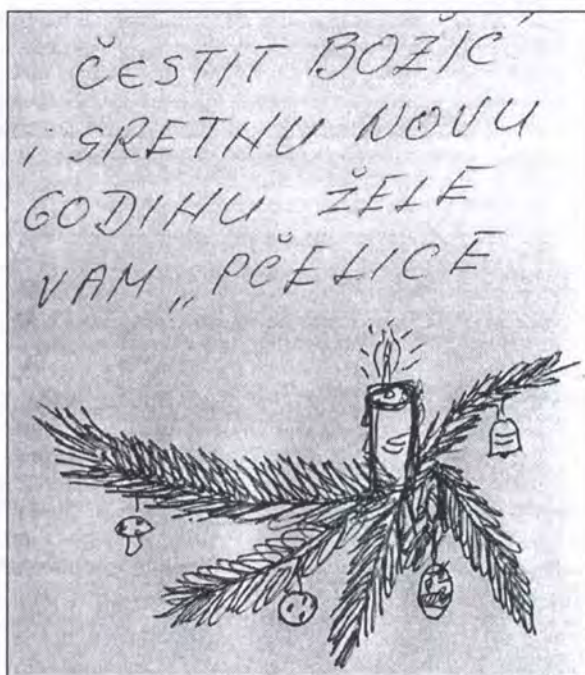 ČESTIT BOŽIĆ
i SRETNU NOVU
GODINU ŽELE
VAM „PČELICE